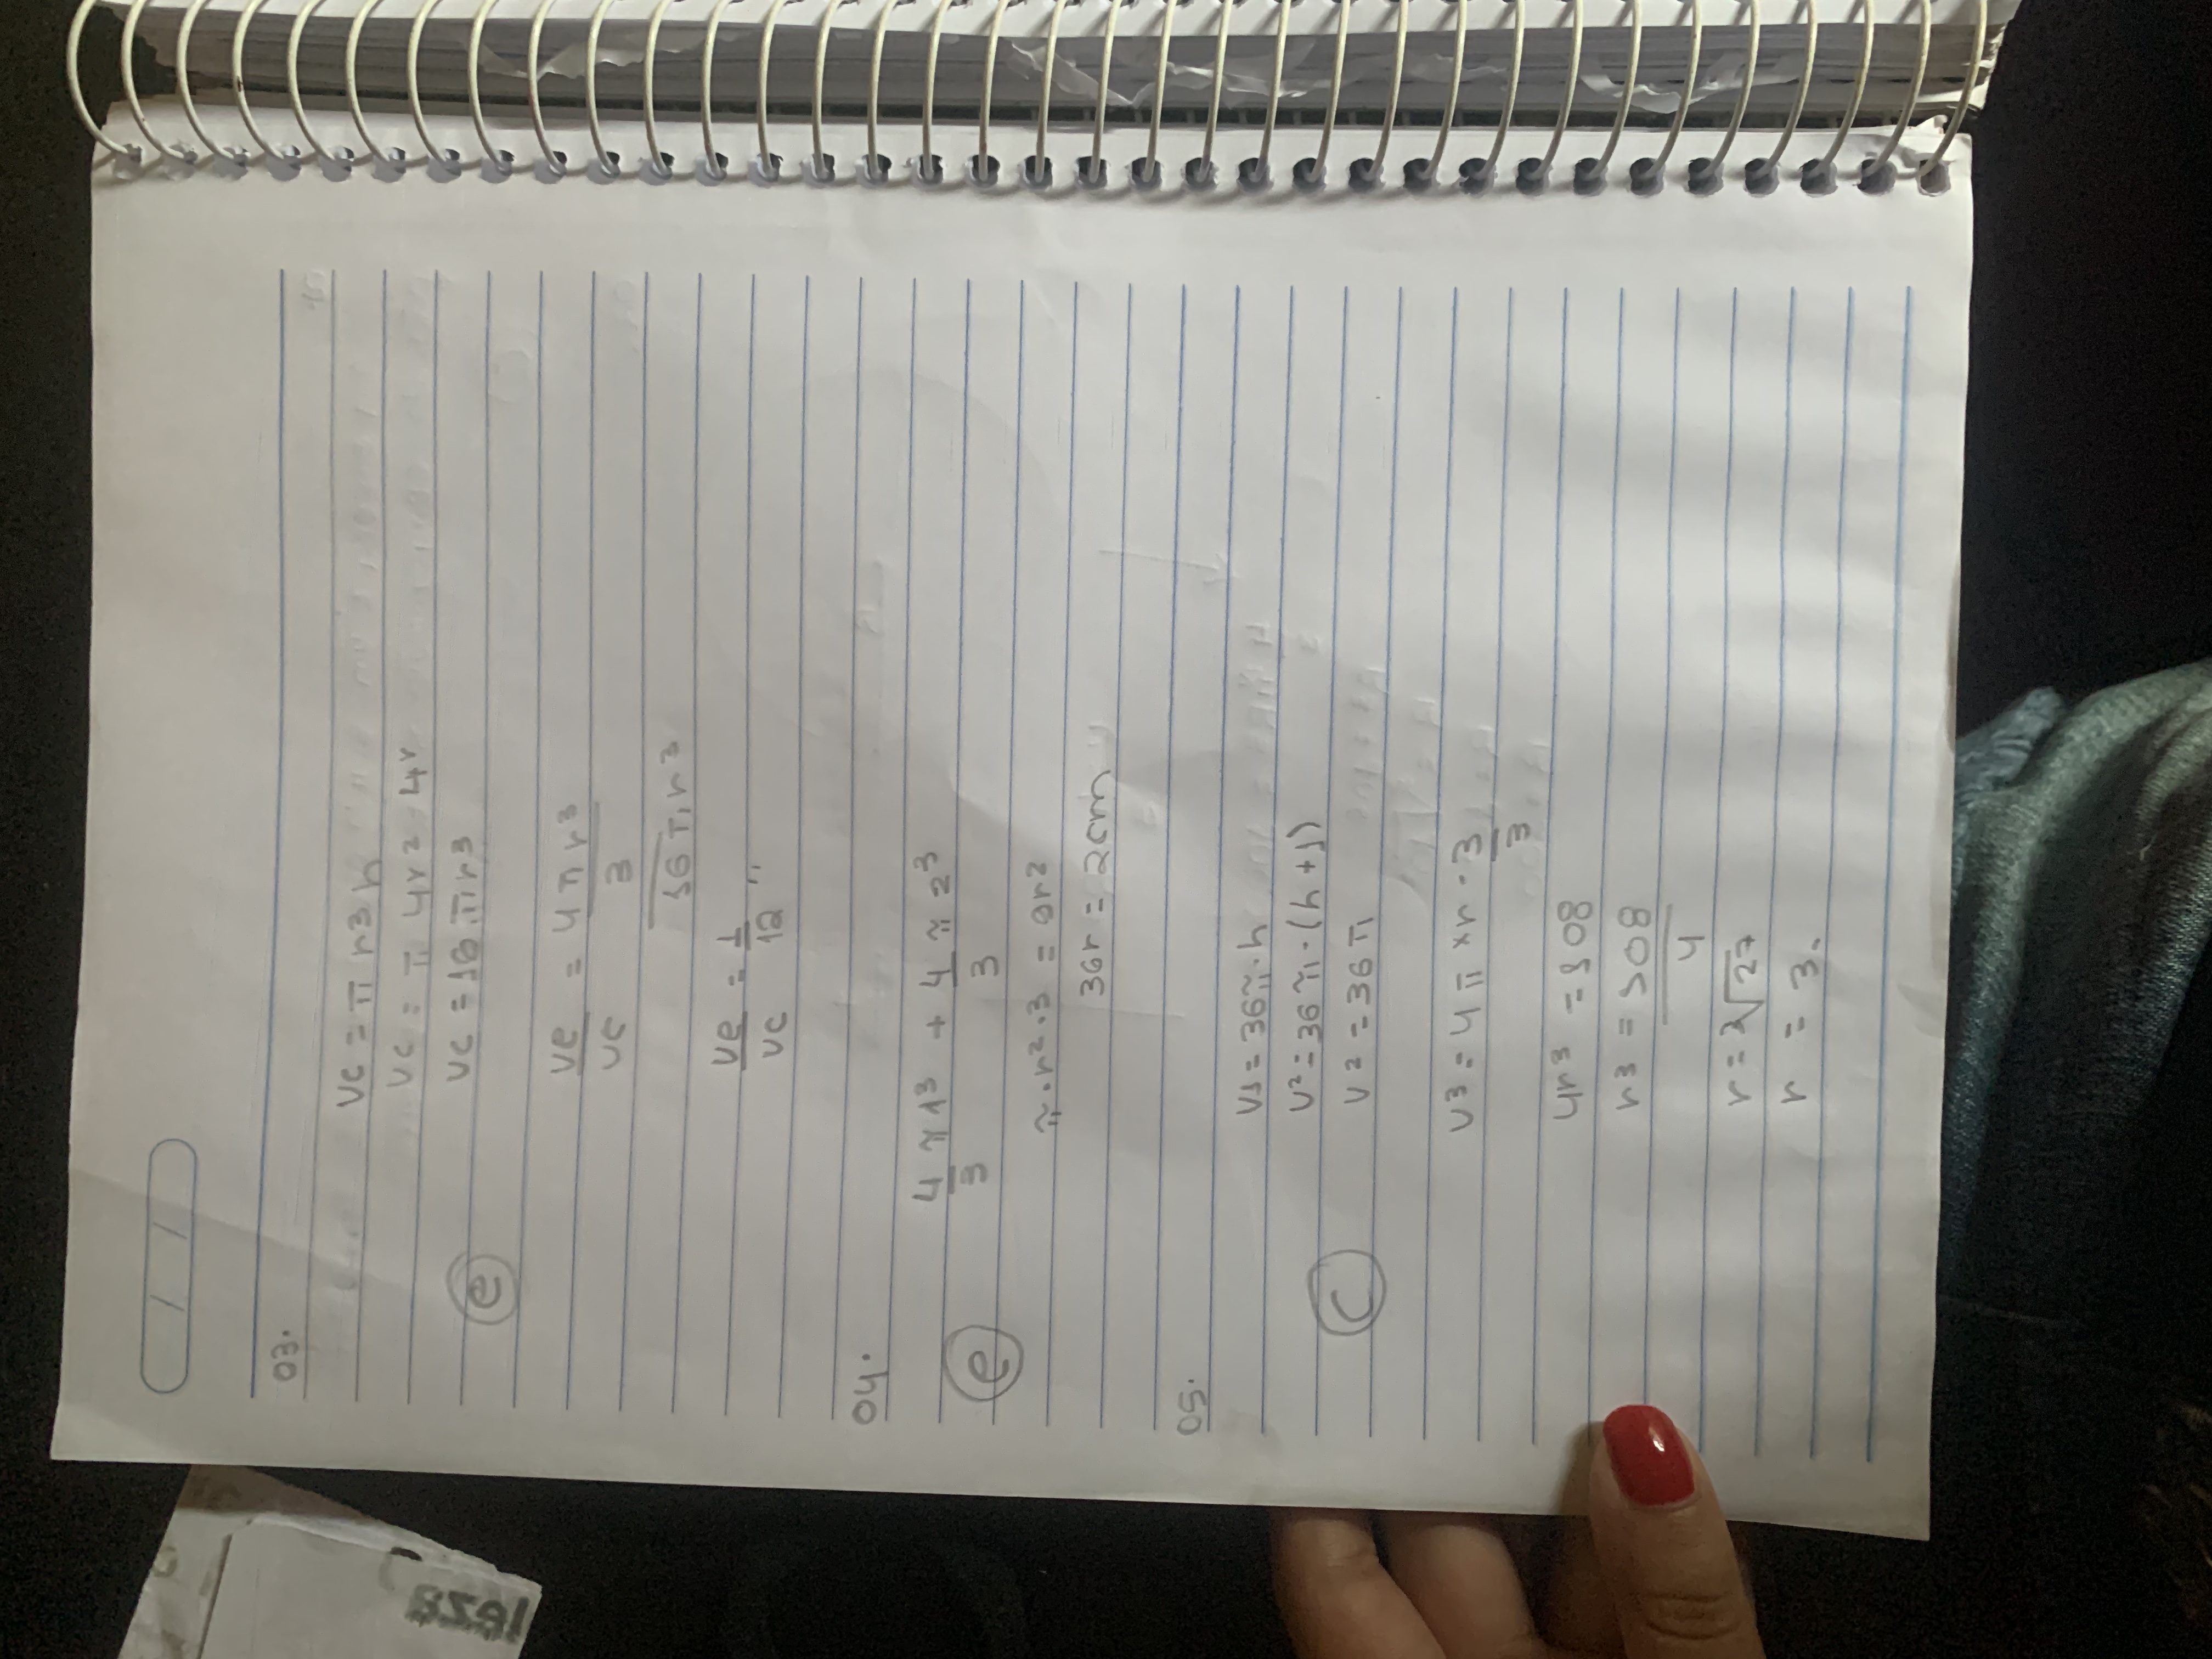 03.
Vc = π r3 h
Vc = π 4r2 · 4r
Vc = 16 π r3
e
Ve = 4 π r3
Vc 3
16 π r3
Ve = 1
Vc 12 "
04.
4 π 13 + 4 π 23
3 3
e
π · r2 · 3 = 9r2
36r = 2cm
05.
V1 = 36π · h
V2 = 36 π · (h + 1)
c
V2 = 36 π
V3 = 4 π × r · 3
3
4r3 = 108
r3 = 108
4
r = 3√27
r = 3.